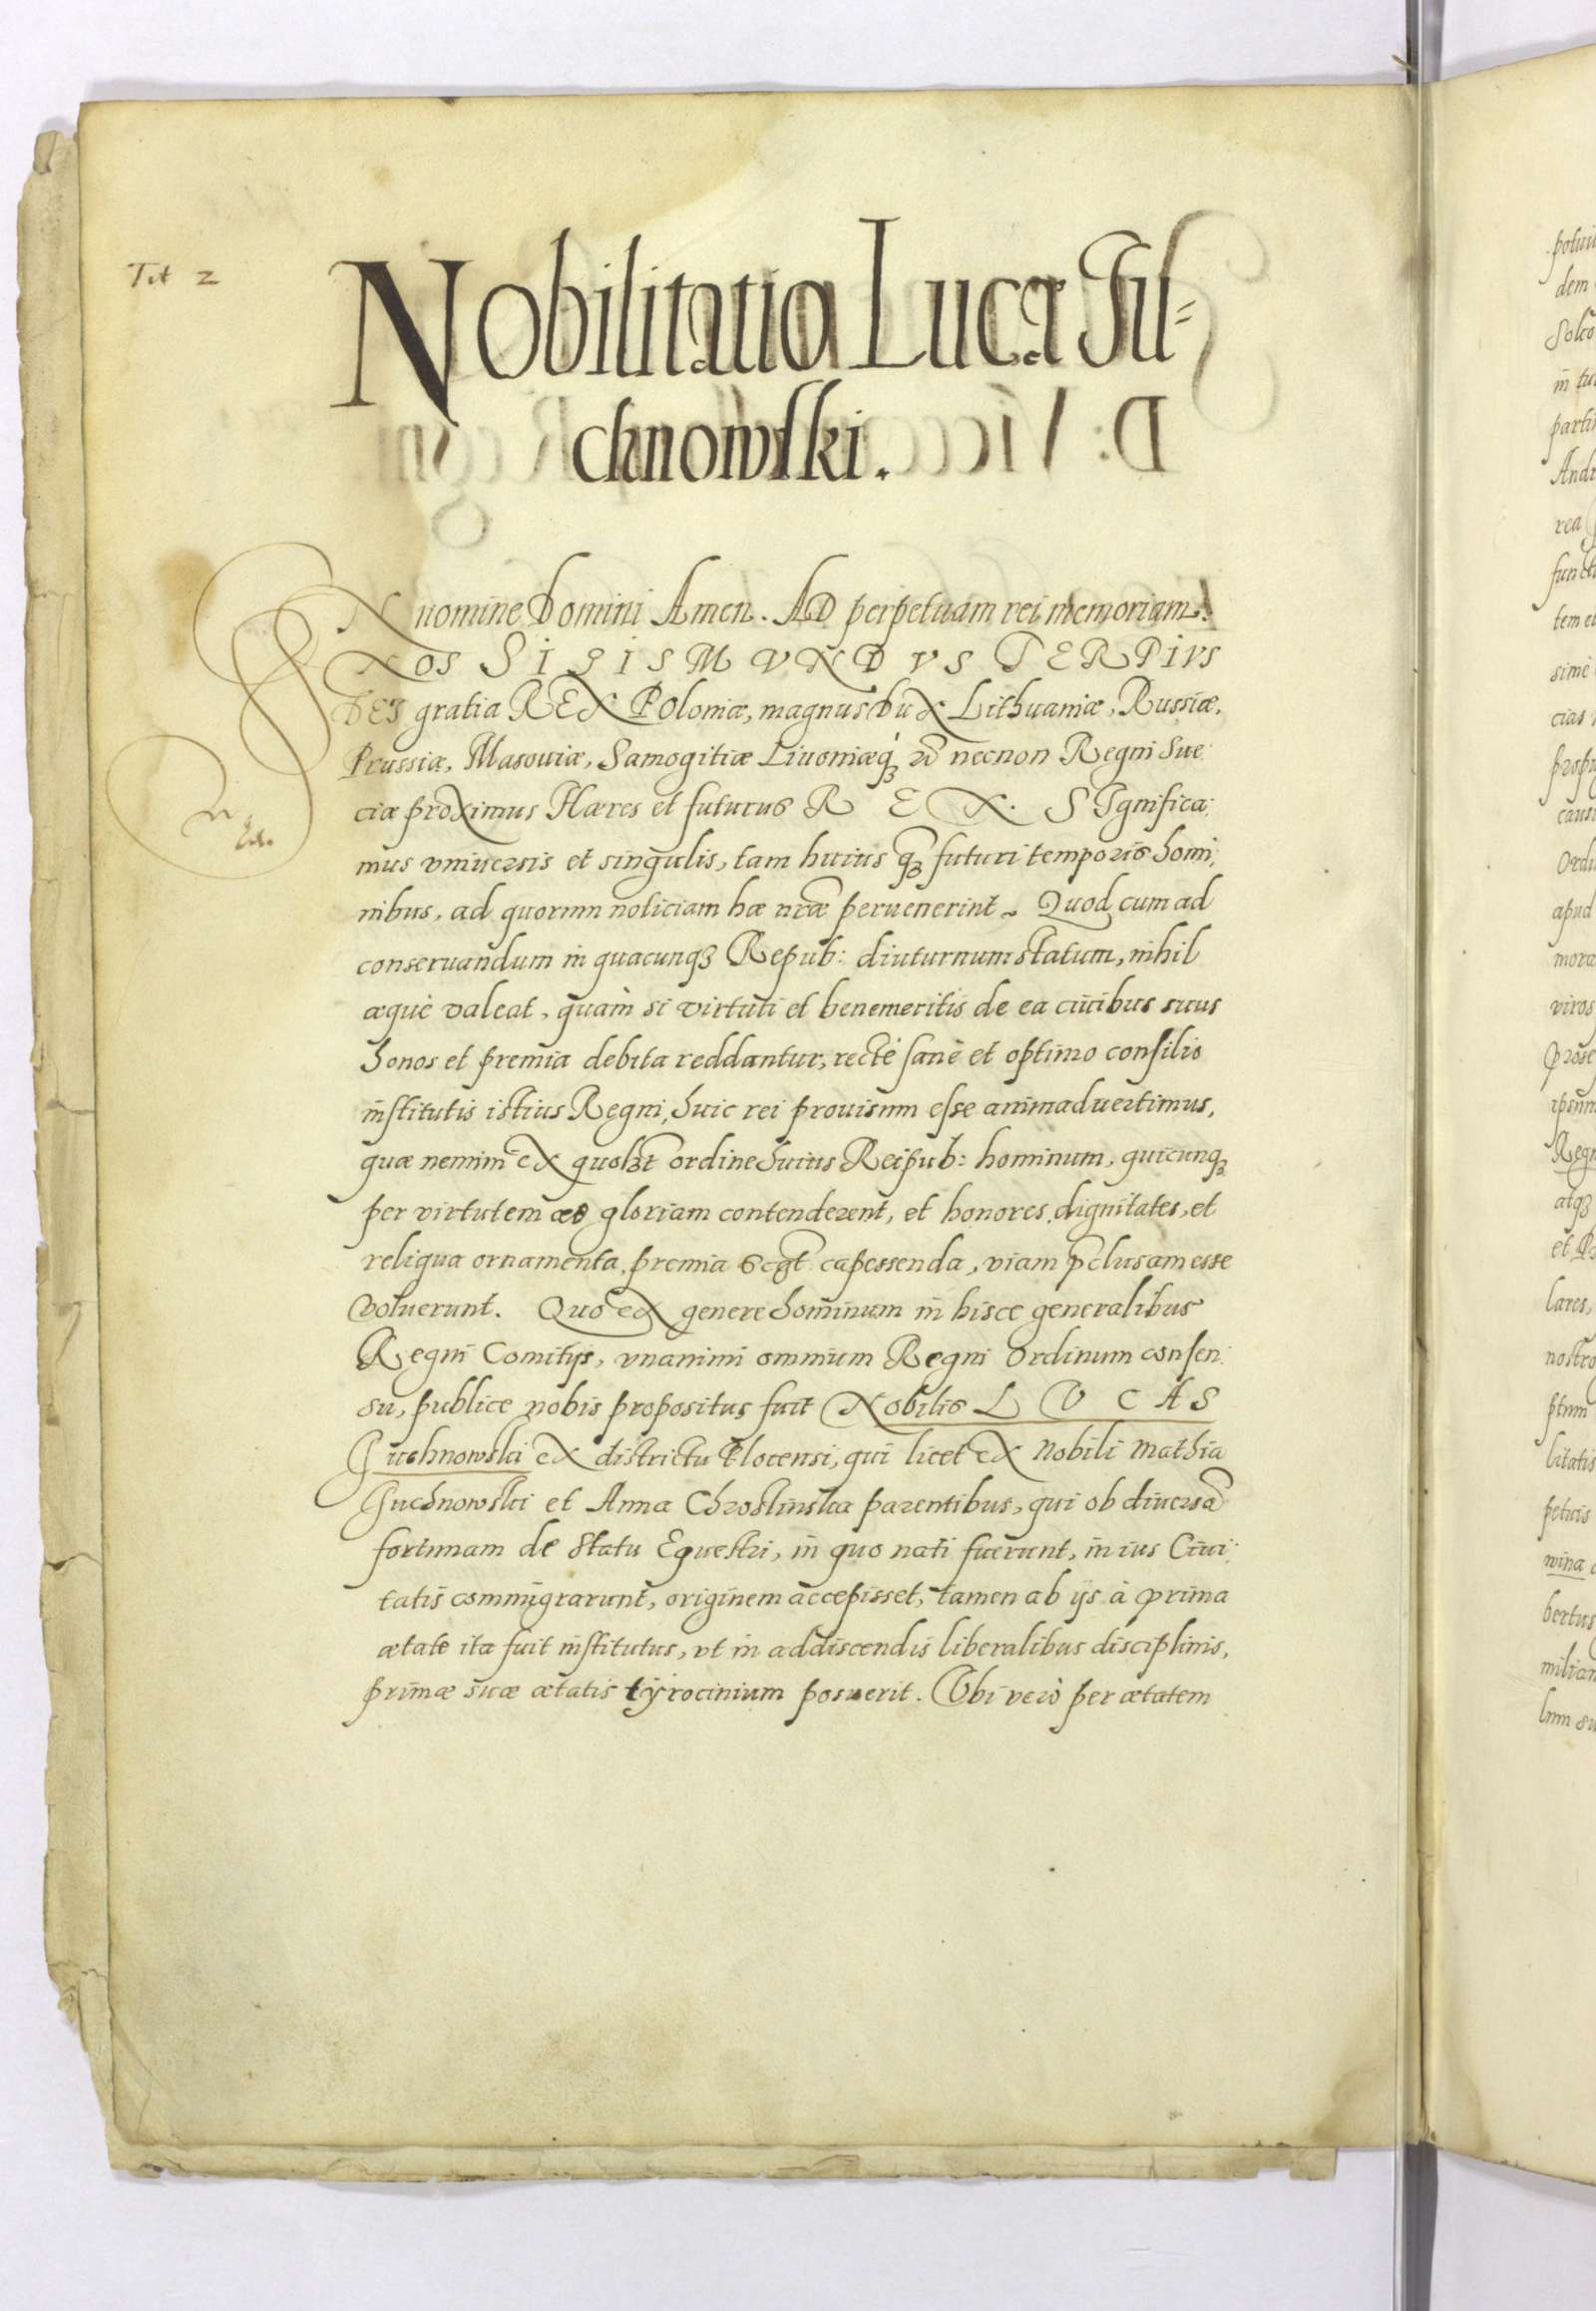 Tit 2
Nobilitatio Lucæ Iu-
chnowski.
IN nomine Domini Amen. AD perpetuam rei memoriam.
Nos SIGISMVNDVS TERTIVS
DEI gratia REX Poloniæ, magnus Dux Lithuaniæ, Russiæ,
Prussiæ, Masouiæ, Samogitiæ Liuoniæq́ꝫ necnon Regni Sue:
ciæ proximus Hæres et futurus REX. SIgnifica:
mus vniuersis et singulis, tam huius qꝫ futuri temporis homi:
nibus, ad quorum noticiam hæ nr̃æ peruenerint. Quod cum ad
conseruandum in quacunqꝫ Repub: diuturnum statum, nihil
æquè valeat, quàm si virtuti et benemeritis de ea ciuibus suus
honos et premia debita reddantur, rectè sanè et optimo consilio
institutis istius Regni, huic rei prouisum esse animaduertimus,
quæ nemini ex quolꝫt ordine huius Reipub: hominum, quicunqꝫ
per virtutem ad gloriam contenderent, et honores, dignitates, et
reliqua ornamenta, premia capessenda, viam p̃clusam esse
voluerunt. Quo ex genere hominum in hisce generalibus
Regni Comitijs, vnanimi omnium Regni Ordinum consen:
su, publice nobis propositus fuit Nobilis LVCAS
Iuchnowski ex districtu Plocensi, qui licet ex Nobili Mathia
Iuchnowski et Anna Chroslinska parentibus, qui ob diuersã
fortunam de statu Equestri, in quo nati fuerunt, in ius Ciui:
tatis commigrarunt, originem accepisset, tamen ab ijs à prima
ætate ita fuit institutus, vt in addiscendis liberalibus disciplinis,
primæ suæ ætatis tyrocinium posuerit. Vbi verò per ætatem